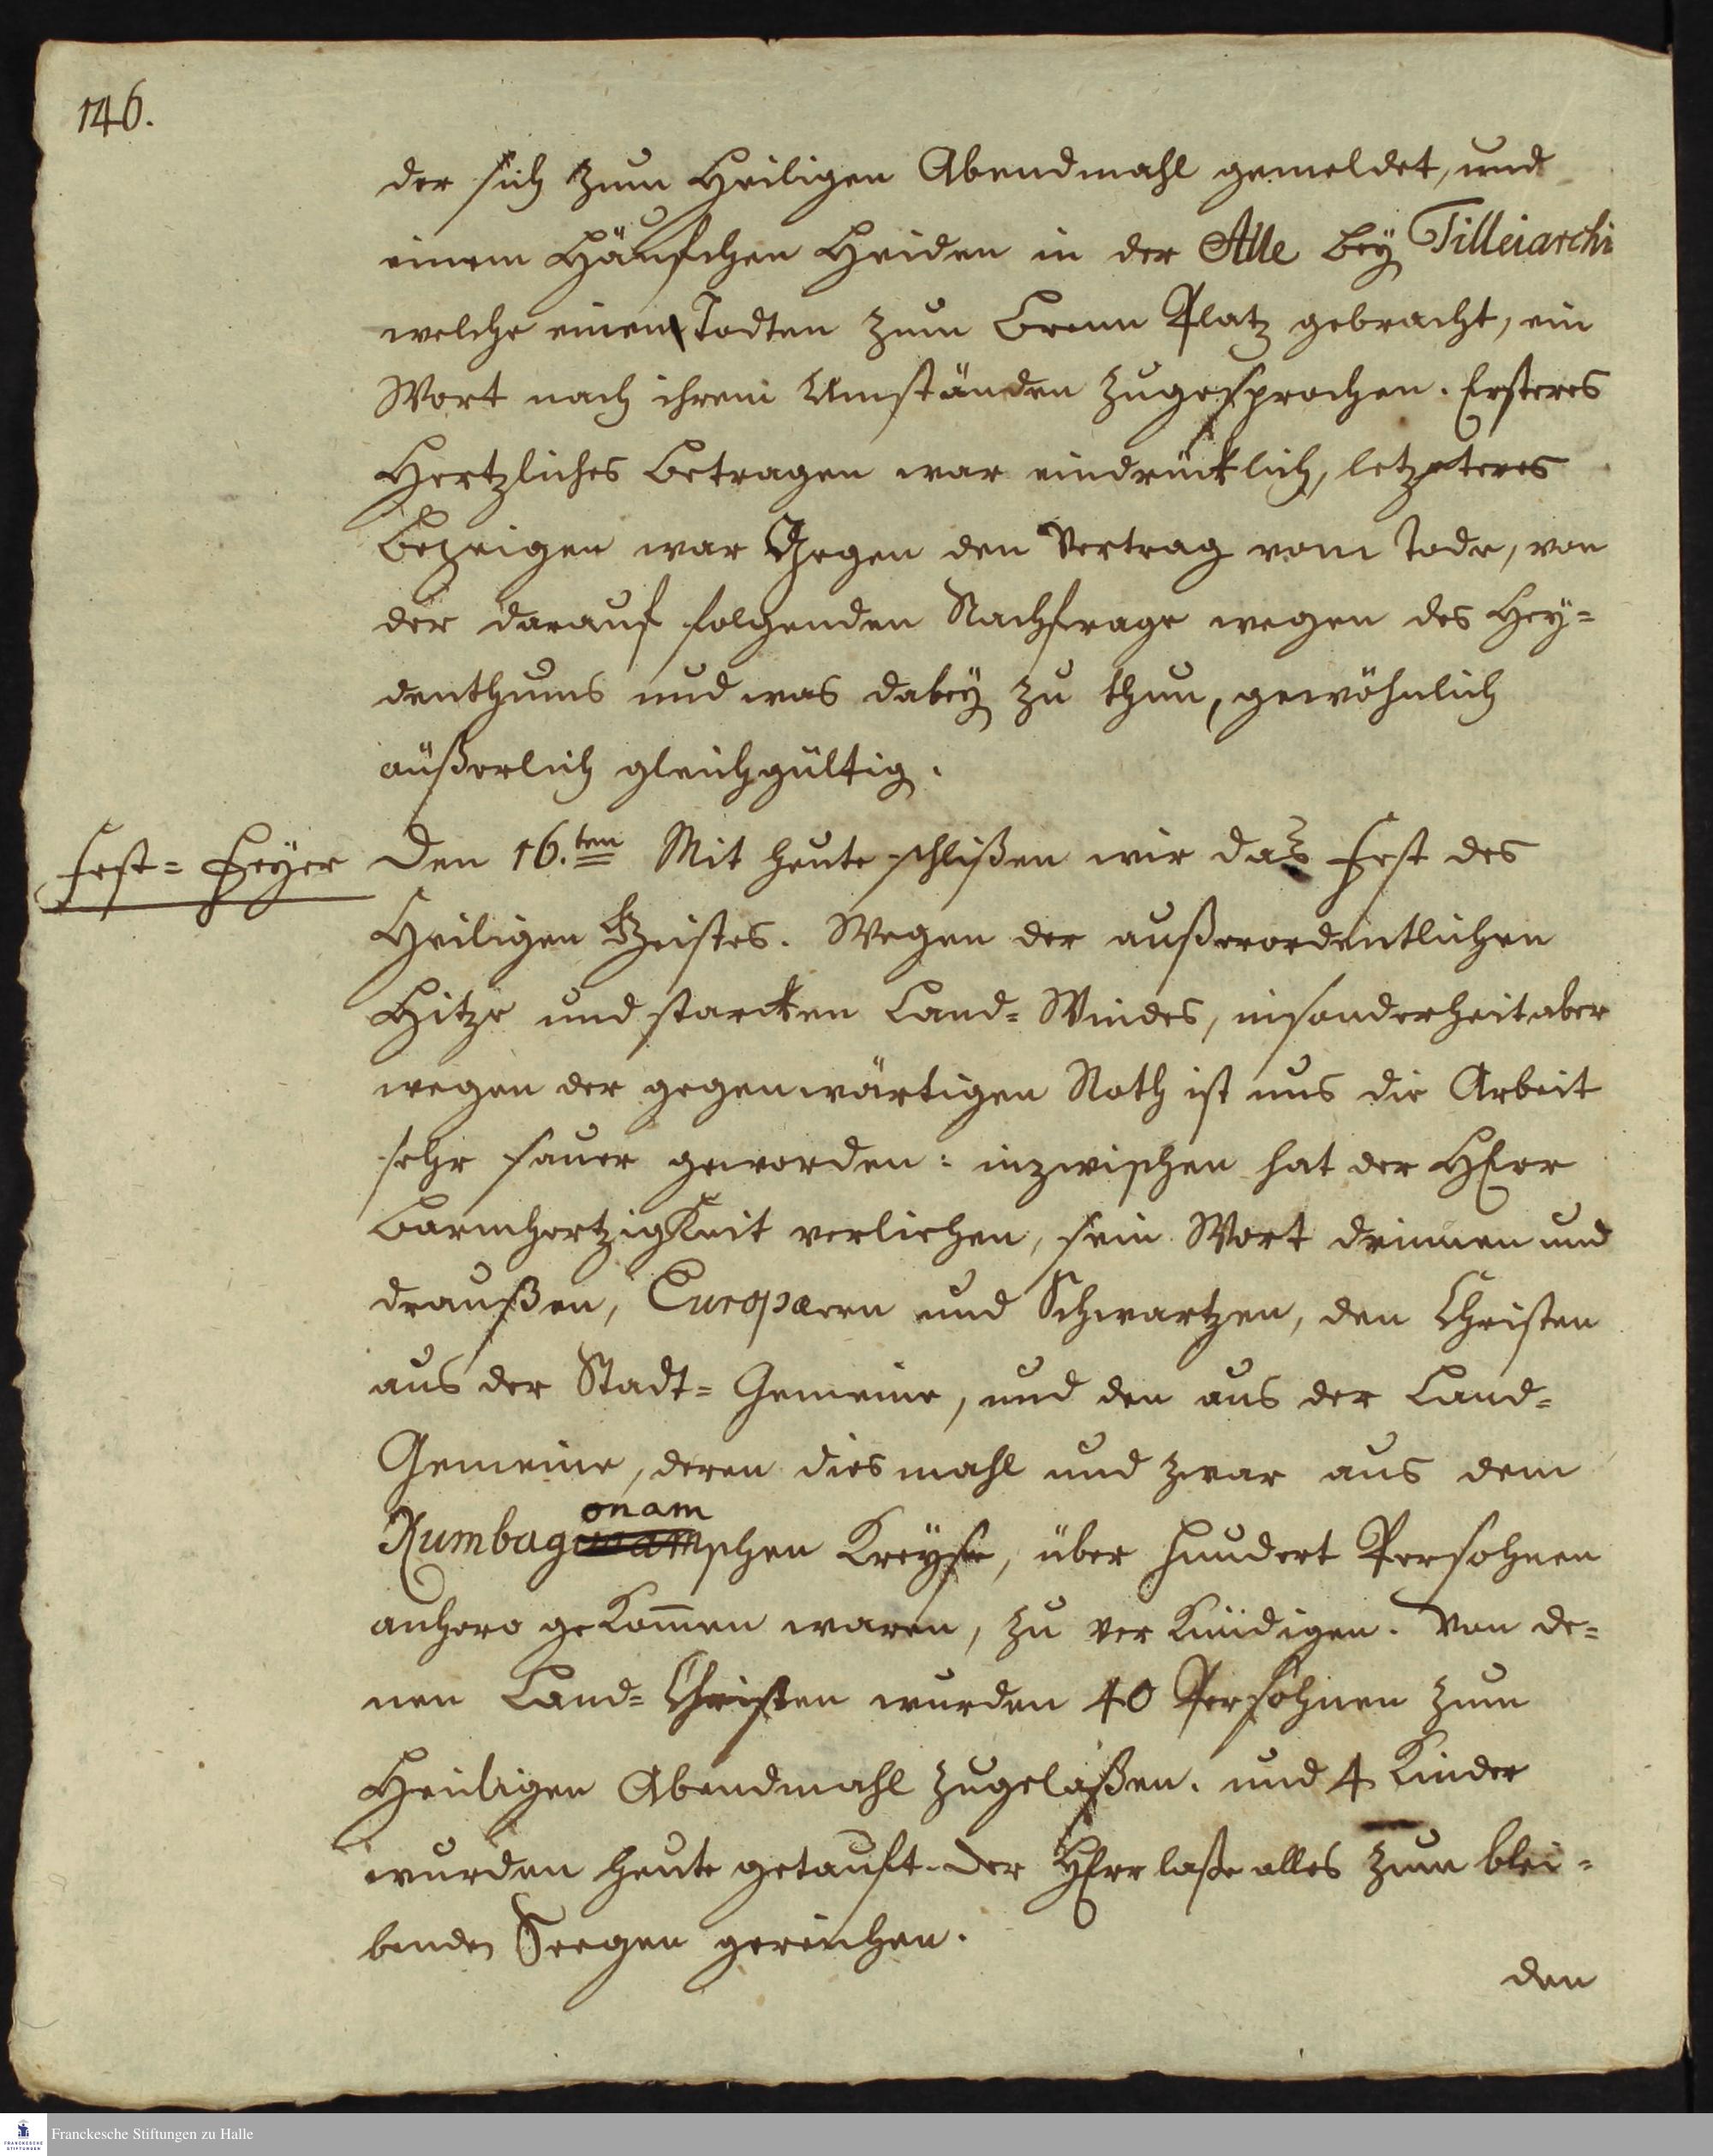 146.
der sich zum Heiligen Abendmahl gemeldet, und
einem Häufchen Heiden in der Alle bey Tilleiarchi
welche einen Todten zum Brenn Platz gebracht, ein
Wort nach ihren Umständen zugesprochen. Ersteres
Hertzliches Betragen war eindrücklich, letzteres
Bezeigen war Gegen den Vertrag vom Tode, von
der darauf folgenden Nachfrage wegen des Hey=
denthums und was dabey zu thun, gewöhnlich
äußerlich gleichgültig.
Fest= Feyer
Den 16.ten Mit heute schlißen wir das Fest des
Heiligen Geistes. Wegen der außerordentlichen
Hitze und starcken Land= Windes, insonderheit aber
wegen der gegenwärtigen Noth ist uns die Arbeit
sehr sauer geworden: inzwischen hat der HErr
Barmhertzigkeit verliehen, sein Wort drinnen und
draußen, Europæern und Schwartzen, den Christen
aus der Stadt= Gemeine, und den aus der Land=
Gemeine, deren diesmahl und zwar aus dem
onam
Kumbagschen Kreyse, über hundert Persohnen
anhero gekom̄en waren, zu verkündigen. Von de=
nen Land= Christen wurden 40 Persohnen zum
Heiligen Abendmahl zugelaßen. und 4 Kinder
wurden heute getauft. Der HErr laße alles zum blei=
benden Seegen gereichen.
den
Franckesche Stiftungen zu Halle